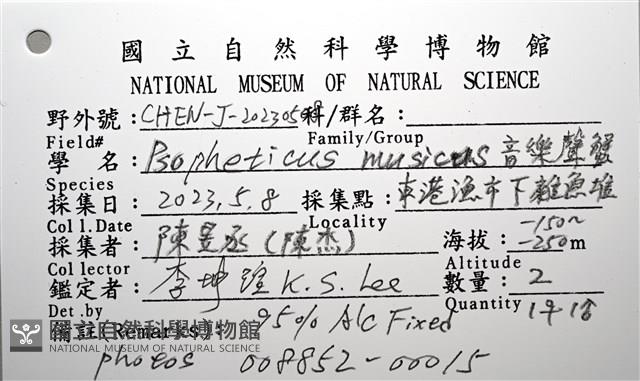 國立自然科學博物館
NATIONAL MUSEUM OF NATURAL SCIENCE
野外號：CHEN-J-20230508 科/群名：
Field# Family/Group
學 名：Psopheticus musicus 音樂聲蟹
Species
採集日：2023.5.8 採集點：東港漁市下雜魚堆
Coll.Date Locality
採集者：陳昱丞（陳杰） 海拔：-150~-250m
Collector Altitude
鑑定者：李坤瑄 K.S. Lee 數量：2
Det.by Quantity 1♀ 1♂
備註(Remarks): 95% Alc Fixed
國立自然科學博物館
NATIONAL MUSEUM OF NATURAL SCIENCE
photos 008852-00015